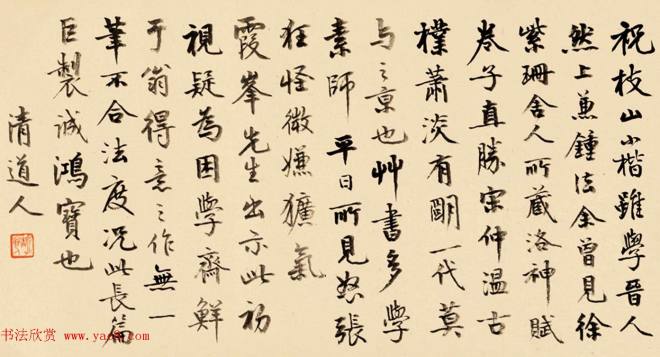 祝枝山小楷雖學晉人
然上兼鍾法余曾見徐
紫珊舍人所藏洛神賦
卷子直勝宋仲溫古
樸蕭淡有明一代莫
与之京也艸書多學
素師平日所見怒張
狂怪微嫌獷氣
霞峯先生出示此初
視疑為困學齋鮮
于翁得意之作無一
筆不合法度況此長篇
巨製誠鴻寶也
清道人
书法欣赏